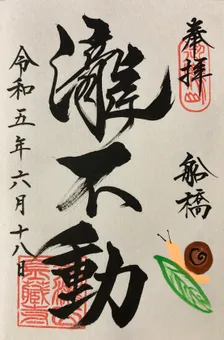 奉拝
船橋
瀧不動
令和五年六月十八日